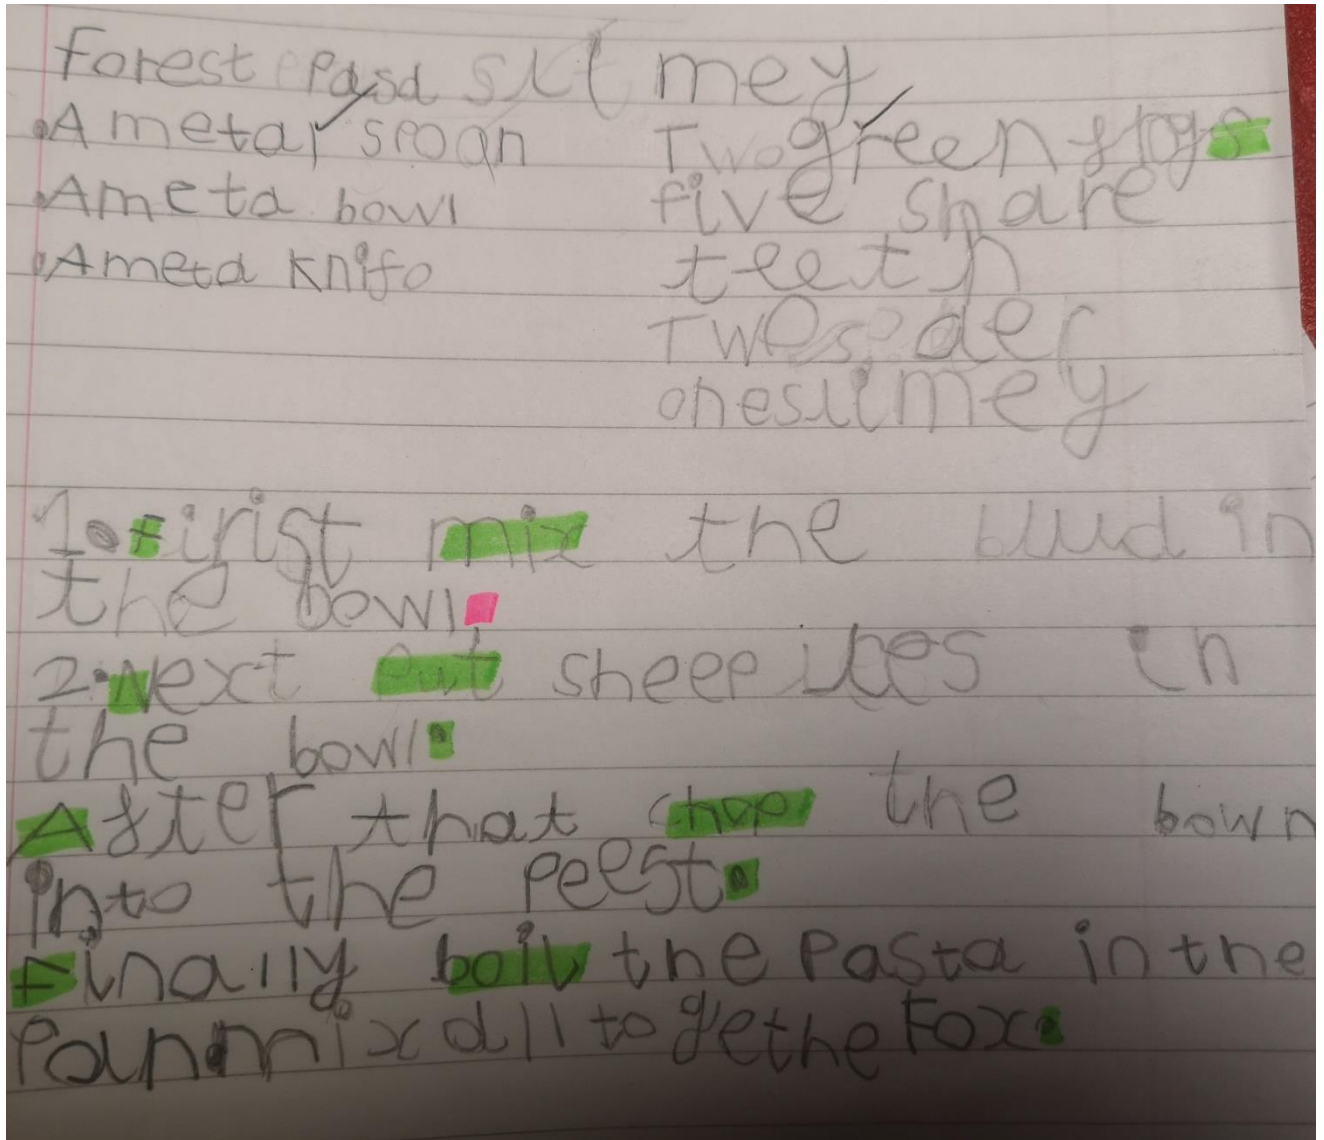 Forest Pasd slimey
A metal spoon Two green frogs
A meta bowl five share
A meta knife teeth
Twe s der
one slimey
1. Firist mix the blud in
the bowl.
2. Next put sheep ites in
the bowl.
After that chop the bown
into the peest.
Finally boil the Pasta in the
Pan mix all to gethe Fox.